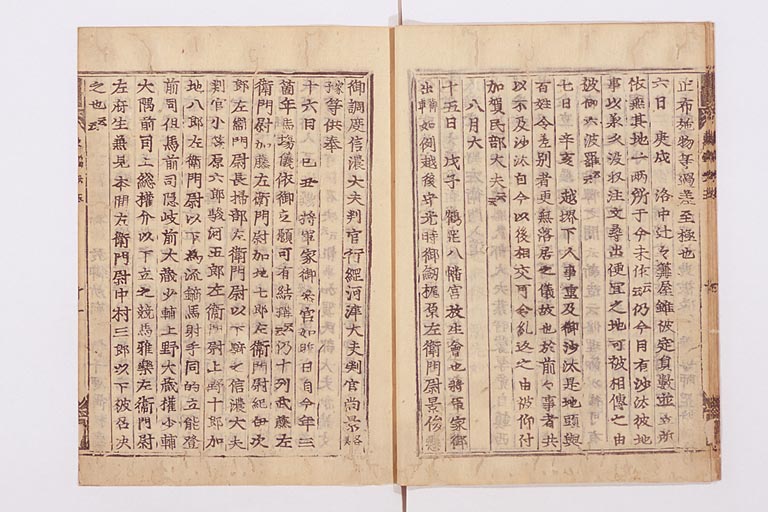 正布施物等過差至極也
六日 庚戌 洛中辻々篝屋雖被定員數並在所
依無其地一兩所于今未作云々仍今日有沙汰彼地
事以承久没収注文尋出便宜之地可被相傳之由
被仰六波羅云々
七日 辛亥 越堺下人事重及御沙汰是地頭與
百姓令差別者更無落居之儀故也於前々事者共
以不及沙汰自今以後相交可令糺返之由被仰付
加賀民部大夫云々
八月大
十五日 戊子 鶴岡八幡宮放生會也將軍家御
出如例越後守光時御劔梶原左衛門尉景俊懸
御調度信濃大夫判官行經河津大夫判官尚景
等供奉
十六日 己丑 將軍家御參宮如昨日自今年三
箇年馬場儀依御立願可有結構云々仍十列武藤左
衛門尉加藤左衛門尉加地七郎左衛門尉紀伊次
郎左衛門尉長掃部左衛門尉以下騎之信濃大夫
判官小笠原六郎駿河五郎左衛門尉上野十郎加
地八郎左衛門尉以下為流鏑馬射手同的立能登
前司但馬前司隠岐前大藏少輔上野大藏權少輔
大隅前司上総權介以下立之競馬雅樂左衛門尉
左府生兼見本間左衛門尉中村三郎以下彼召决
之也云々